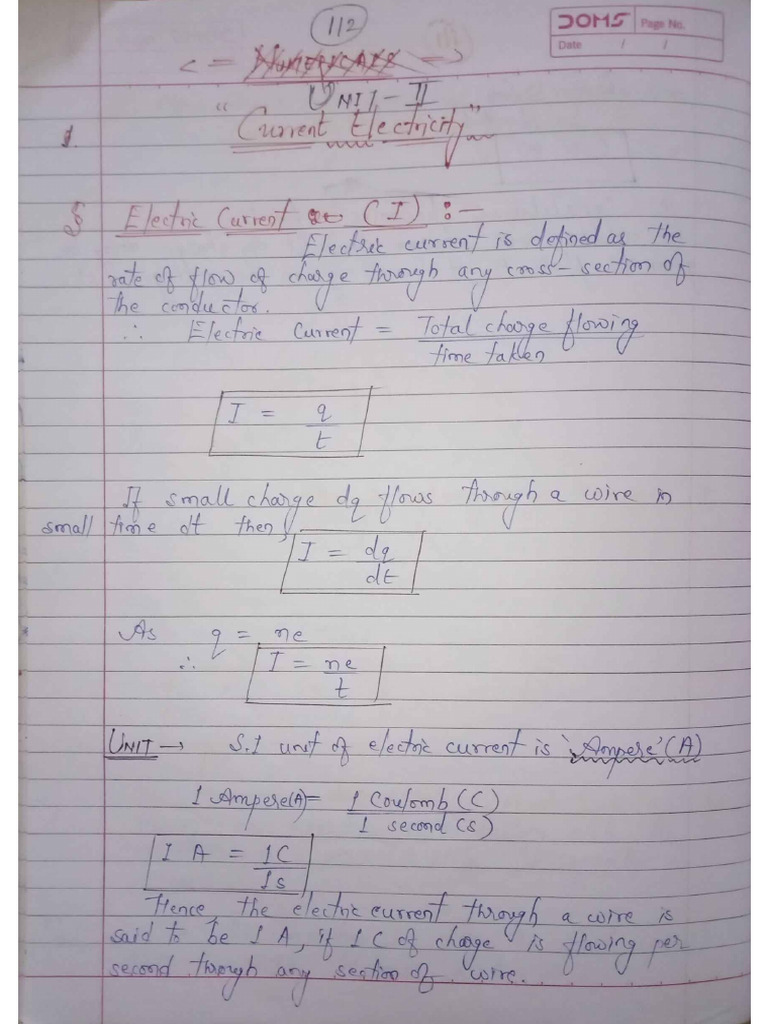 112
DOMS Page No.
Date / /
UNIT - II
"Current Electricity"
1.
§ Electric Current (I) :-
Electric current is defined as the
rate of flow of charge through any cross-section of
the conductor.
∴ Electric Current = Total charge flowing
time taken
I = q
t
If small charge dq flows through a wire in
small time dt then,
I = dq
dt
As q = ne
∴ I = ne
t
UNIT → S.I unit of electric current is 'Ampere' (A)
1 Ampere(A) = 1 Coulomb (C)
1 second (s)
1 A = 1C
1s
Hence, the electric current through a wire is
said to be 1 A, if 1 C of charge is flowing per
second through any section of wire.